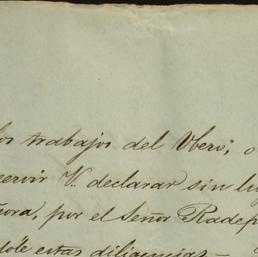 los trabajos del Vbero, o
servir V. declarar sin lu
ñora, por el Señor Radep
dole estas diligencias